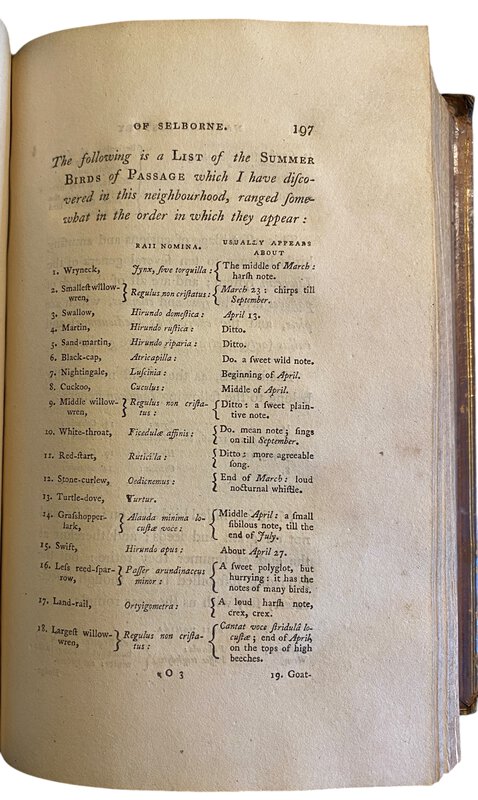 OF SELBORNE. 197
The following is a LIST of the SUMMER
BIRDS OF PASSAGE which I have diſco-
vered in this neighbourhood, ranged ſome-
what in the order in which they appear:
RAII NOMINA. USUALLY APPEARS
ABOUT
1. Wryneck, Jynx, ſive torquilla: { The middle of March:
harſh note.
2. Smalleſt willow-
wren, } Regulus non criſtatus: { March 23: chirps till
September.
3. Swallow, Hirundo domeſtica: April 13.
4. Martin, Hirundo ruſtica: Ditto.
5. Sand-martin, Hirundo riparia: Ditto.
6. Black-cap, Atricapilla: Do. a ſweet wild note.
7. Nightingale, Luſcinia: Beginning of April.
8. Cuckoo, Cuculus: Middle of April.
9. Middle willow-
wren, } Regulus non criſta-
tus: { Ditto: a ſweet plain-
tive note.
10. White-throat, Ficedulæ affinis: { Do. mean note; ſings
on till September.
11. Red-ſtart, Ruticilla: { Ditto: more agreeable
ſong.
12. Stone-curlew, Oedicnemus: { End of March: loud
nocturnal whiſtle.
13. Turtle-dove, Turtur.
14. Graſshopper-
lark, } Alauda minima lo-
cuſtæ voce: { Middle April: a ſmall
ſibilous note, till the
end of July.
15. Swift, Hirundo apus: About April 27.
16. Leſs reed-ſpar-
row, } Paſſer arundinaceus
minor: { A ſweet polyglot, but
hurrying: it has the
notes of many birds.
17. Land-rail, Ortygometra: { A loud harſh note,
crex, crex.
18. Largeſt willow-
wren, } Regulus non criſta-
tus: { Cantat voce ſtridulâ lo-
cuſtæ; end of April,
on the tops of high
beeches.
O 3 19. Goat-